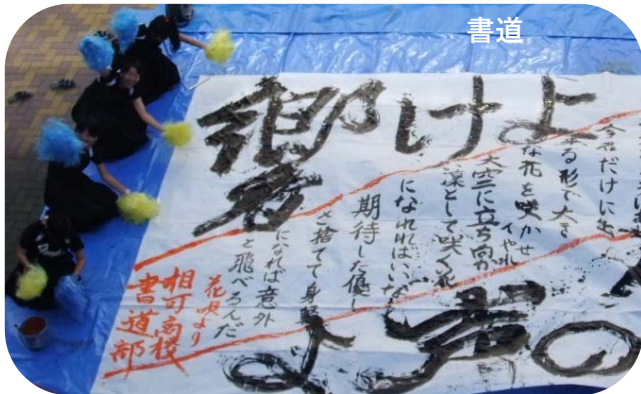 書道
響けよ
今君だけに出
なる形で大き
な花を咲かせ
イヤれ
大空に立ち向か
凛として咲く花
になれればいいな
期待した優し
さ捨てて身軽
になれば意外
と飛べるんだ
花唄より
相可高校
書道部
の声よ